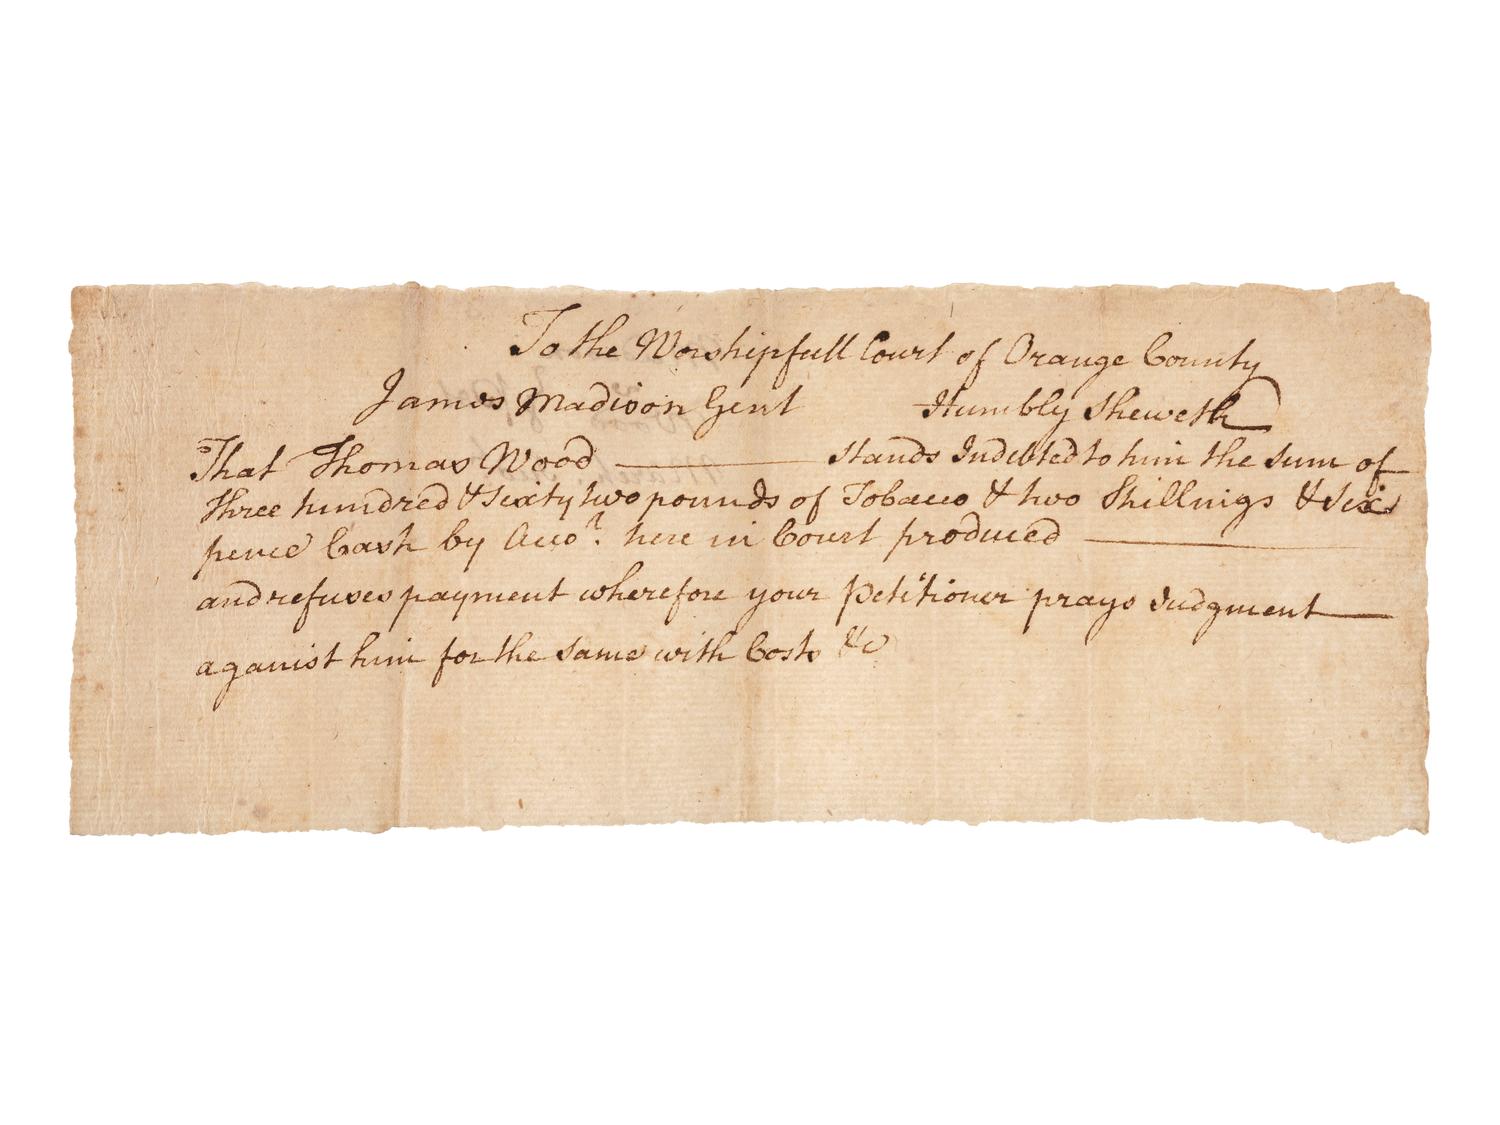 To the Worshipfull Court of Orange County
James Madison Gent Humbly Sheweth
That Thomas Wood stands Indebted to him the sum of
three hundred & sixty two pounds of Tobacco & two Shillings & six
pence Cash by Acco.t here in Court produced
and refuses payment wherefore your Petitioner prays Judgment
against him for the same with Costs &c